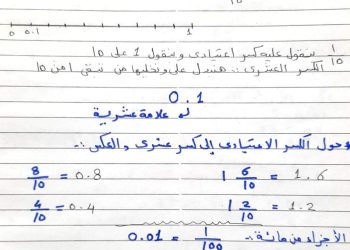 0 0.1 1
1/10 سنقول عليه كسر اعتيادى وسنقول 1 على 10
الكسر العشرى :- هنبدل على ونخليها من تبقى 1 من 10
0.1
له علامة عشرية
وحول الكسر الاعتيادى إلى كسر عشرى والعكس :-
8/10 = 0.8 1 6/10 = 1.6
4/10 = 0.4 1 2/10 = 1.2
الأجزاء من مائة :- 1/100 = 0.01